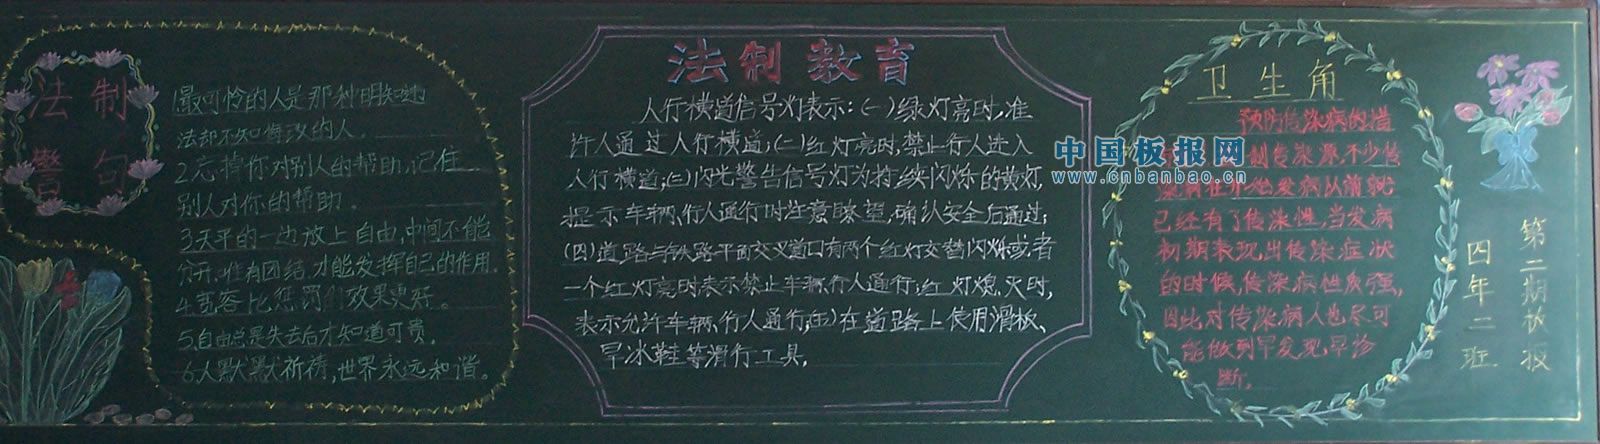 法制
警句
1最可怜的人是那种明知违
法却不知悔改的人。
2忘掉你对别人的帮助,记住
别人对你的帮助。
3天平的一边放上自由,中间不能
分开,唯有团结,才能发挥自己的作用。
4.宽容比惩罚效果更好。
5.自由总是失去后才知道可贵。
6.人默默祈祷,世界永远和谐。
法制教育
人行横道信号灯表示:(一)绿灯亮时,准
许人通过人行横道;(二)红灯亮时,禁止行人进入
人行横道;(三)闪光警告信号灯为持续闪烁的黄灯,
提示车辆、行人通行时注意瞭望,确认安全后通过;
(四)道路与铁路平面交叉道口有两个红灯交替闪烁或者
一个红灯亮时表示禁止车辆、行人通行;红灯熄灭时,
表示允许车辆、行人通行;(五)在道路上使用滑板、
旱冰鞋等滑行工具。
卫生角
预防传染病的措
制传染源,不少传
染病在开始发病以前就
已经有了传染性,当发病
初期表现出传染症状
的时候,传染病性质强,
因此对传染病人也尽可
能做到早发现,早诊
断。
中国板报网
www.cnbanbao.cn
第二期板报
四年二班